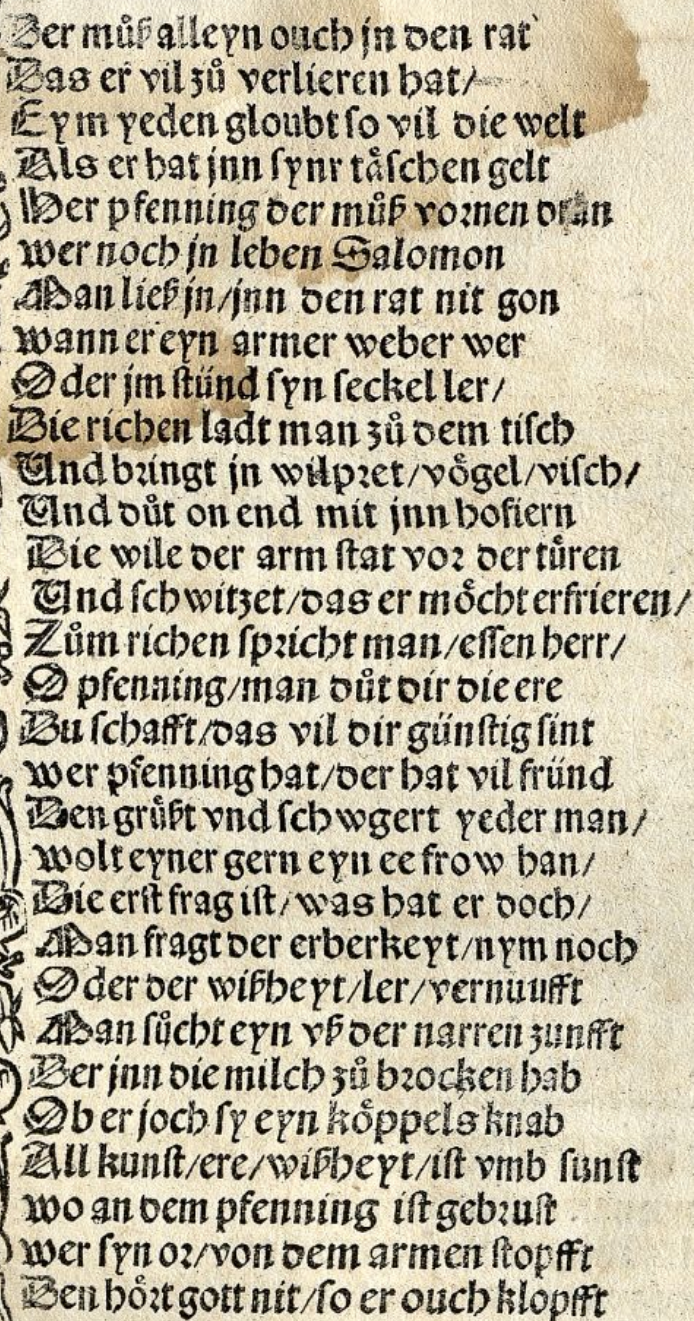 Der můß alleyn ouch jn den rat
Das er vil zů verlieren hat/
Eym yeden gloubt so vil die welt
Als er hat jnn synr tåschen gelt
Her pfenning der můß vornen dran
wer noch jn leben Salomon
Man ließ jn/jnn den rat nit gon
wann er eyn armer weber wer
Oder jm stünd syn seckel ler/
Die richen ladt man zů dem tisch
Vnd bringt jn wilpret/vögel/visch/
Vnd důt on end mit jnn hofiern
Die wile der arm stat vor der türen
Vnd schwitzet/das er möcht erfrieren/
Zům richen spricht man/essen herr/
O pfenning/man důt dir die ere
Du schafft/das vil dir günstig sint
wer pfenning hat/der hat vil fründ
Den grüßt vnd schwgert yederman/
wolt eyner gern eyn ee frow han/
Die erst frag ist/was hat er doch/
Man fragt der erberkeyt/nym noch
Oder der wißheyt/ler/vernunfft
Man sůcht eyn vß der narren zunfft
Der jnn die milch zů brocken hab
Ob er joch sy eyn köppels knab
All kunst/ere/wißheyt/ist vmb sunst
wo an dem pfenning ist gebrust
wer syn or/von dem armen stopfft
Den hört gott nit/so er ouch klopfft